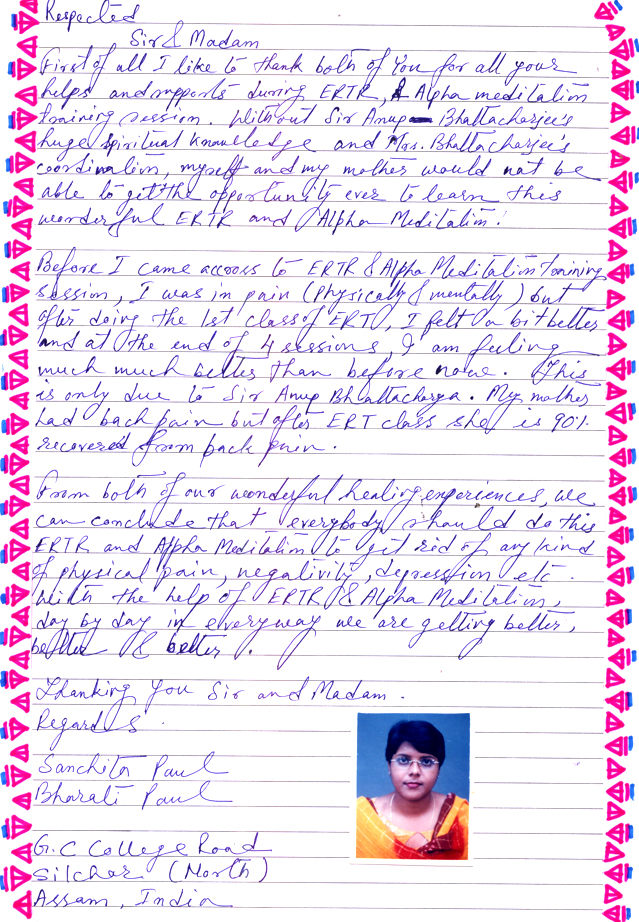 Respected
Sir & Madam
First of all I like to thank both of you for all your
helps and supports during ERTR, & Alpha meditation
training session. Without Sir Anup Bhattacharjee's
huge spiritual knowledge and Mrs. Bhattacharjee's
coordination, myself and my mother would not be
able to get the opportunity ever to learn this
wonderful ERTR and Alpha Meditation!
Before I came accross to ERTR & Alpha Meditation training
session, I was in pain (Physically & mentally) but
after doing the 1st class of ERT, I felt a bit better
and at the end of 4 sessions I am feeling
much much better than before now. This
is only due to Sir Anup Bhattacharya. My mother
had back pain but after ERT class she is 90%
recovered from back pain.
From both of our wonderful healing experiences, we
can conclude that everybody should do this
ERTR and Alpha Meditation to get rid of any kind
of physical pain, negativity, depression etc.
With the help of ERTR & Alpha Meditation,
day by day in everyway we are getting better,
better & better.
Thanking You Sir and Madam.
Regards
Sanchita Paul
Bharati Paul
G.C College Road
Silchar (North)
Assam, India